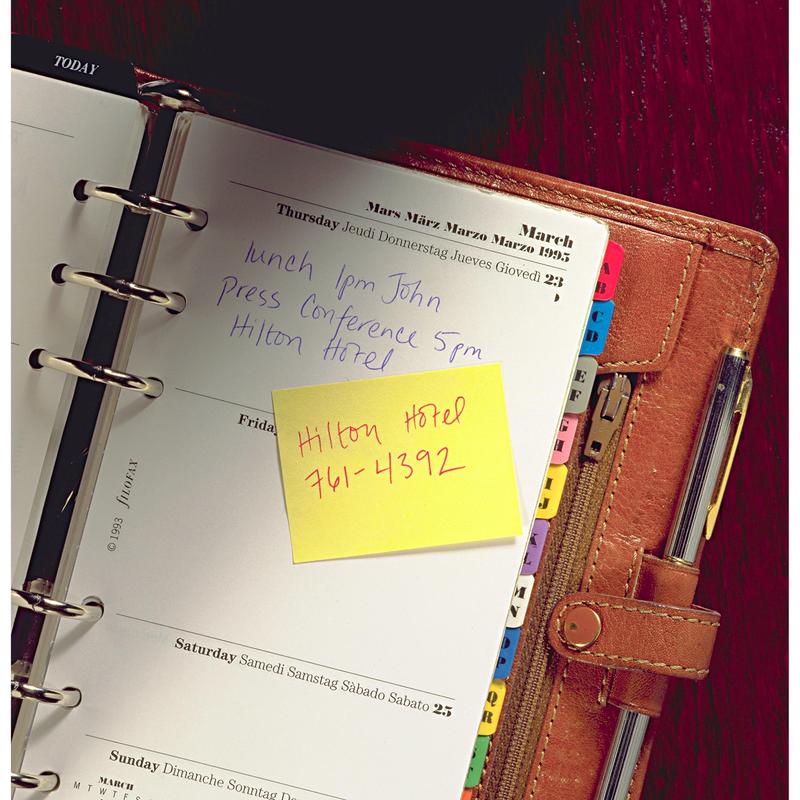 TODAY
March
Mars März Marzo Marzo 1995
Thursday Jeudi Donnerstag Jueves Giovedì 23
lunch 1pm John
Press Conference 5pm
Hilton Hotel
Friday
Hilton Hotel
761-4392
© 1993 fILOFAX
Saturday Samedi Samstag Sàbado Sabato 25
Sunday Dimanche Sonntag Do
MARCH
M T W T F S
A B
C D
E F
G H
I J
K L
M N
O P
Q R